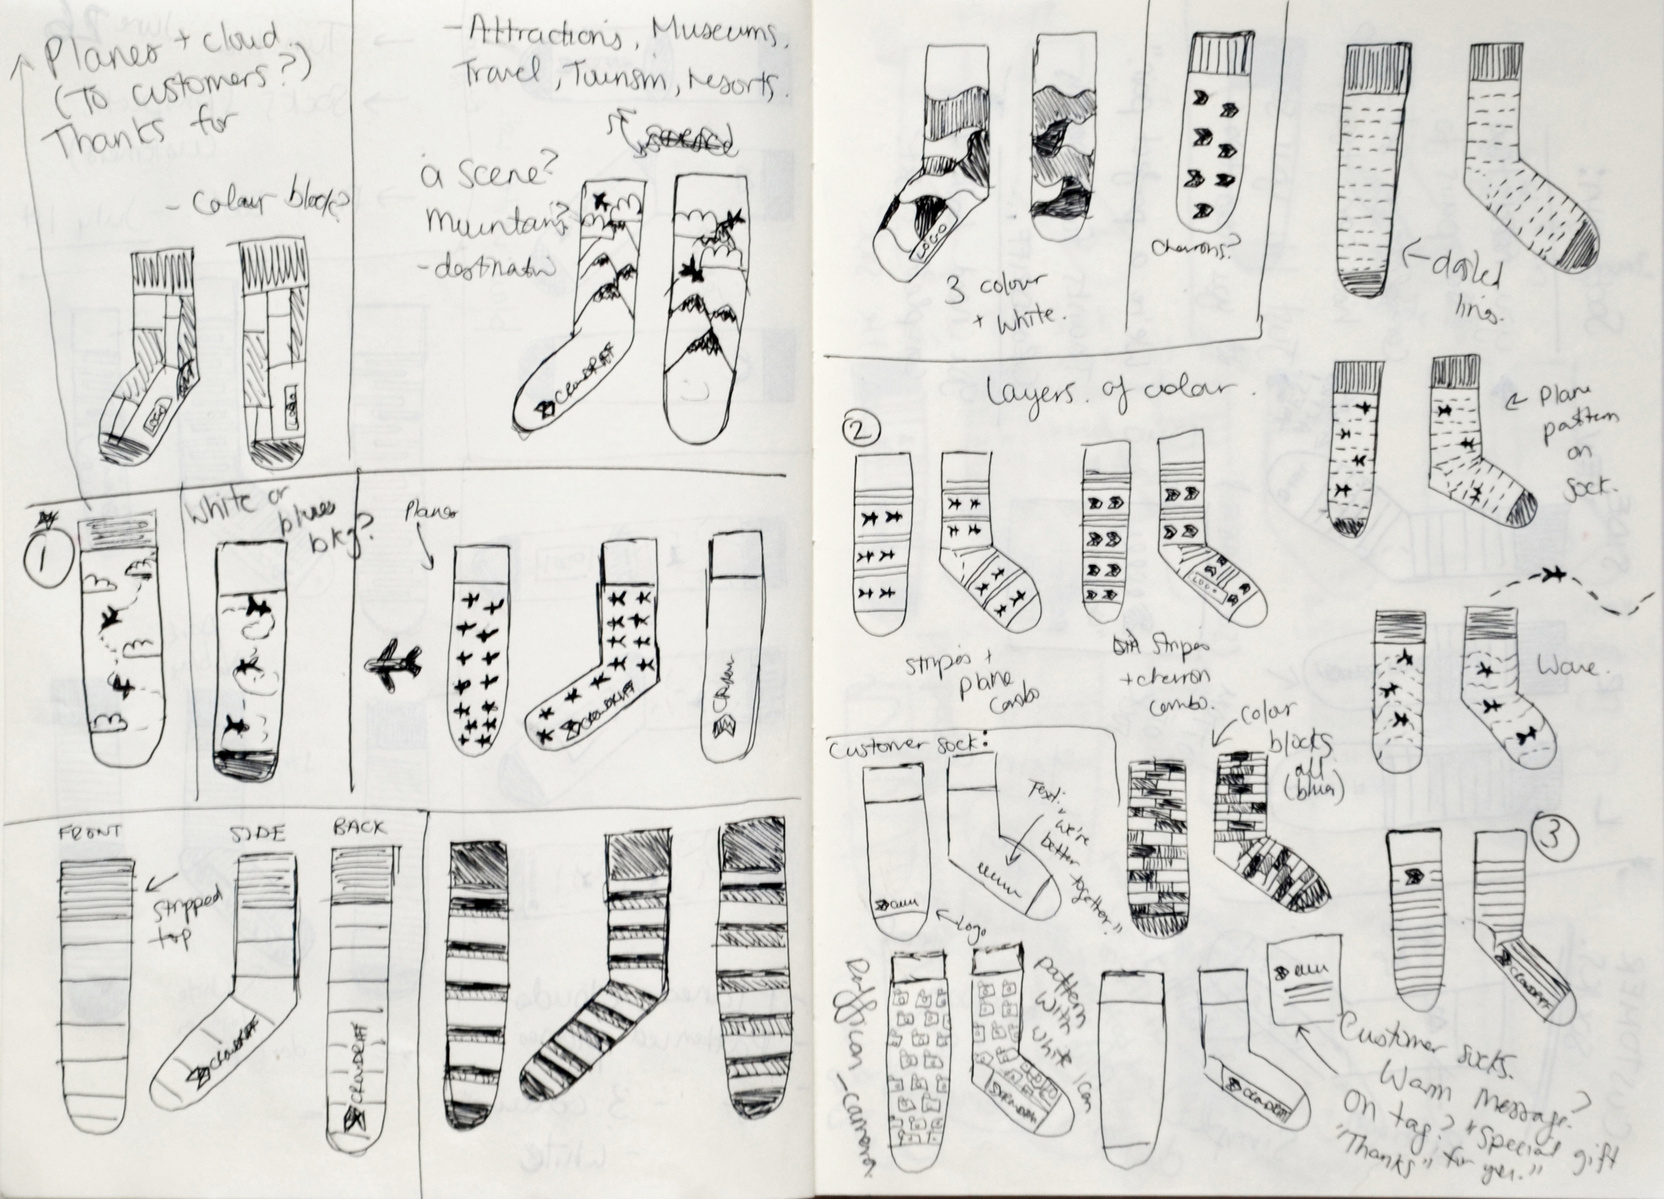 Planes + cloud.
(To customers?)
Thanks for
- Attractions, Museums,
Travel, Tourism, resorts.
- Colour block?
a scene?
mountain?
- destinatn
LOGO
CROWDRIFF
1
White or
blues
bkg?
Planes
CROWDRIFF
FRONT
SIDE
BACK
stripped
top
CROWDRIFF
CROWDRIFF
LOGO
3 colour
+ white.
chevrons?
dashed
lines.
Layers of colour.
2
stripes +
plane
combo
LOGO
stripes
+ chevron
combo.
Plane
pattern
on
sock.
Wave.
Customer sock:
Text:
"we're
better
together."
Logo
Color
blocks
all
(blue)
3
CROWDRIFF
pattern
with
white icon
CROWDRIFF
CROWDRIFF
Customer socks.
Warm message?
on tag? * Special gift
"Thanks" for you."